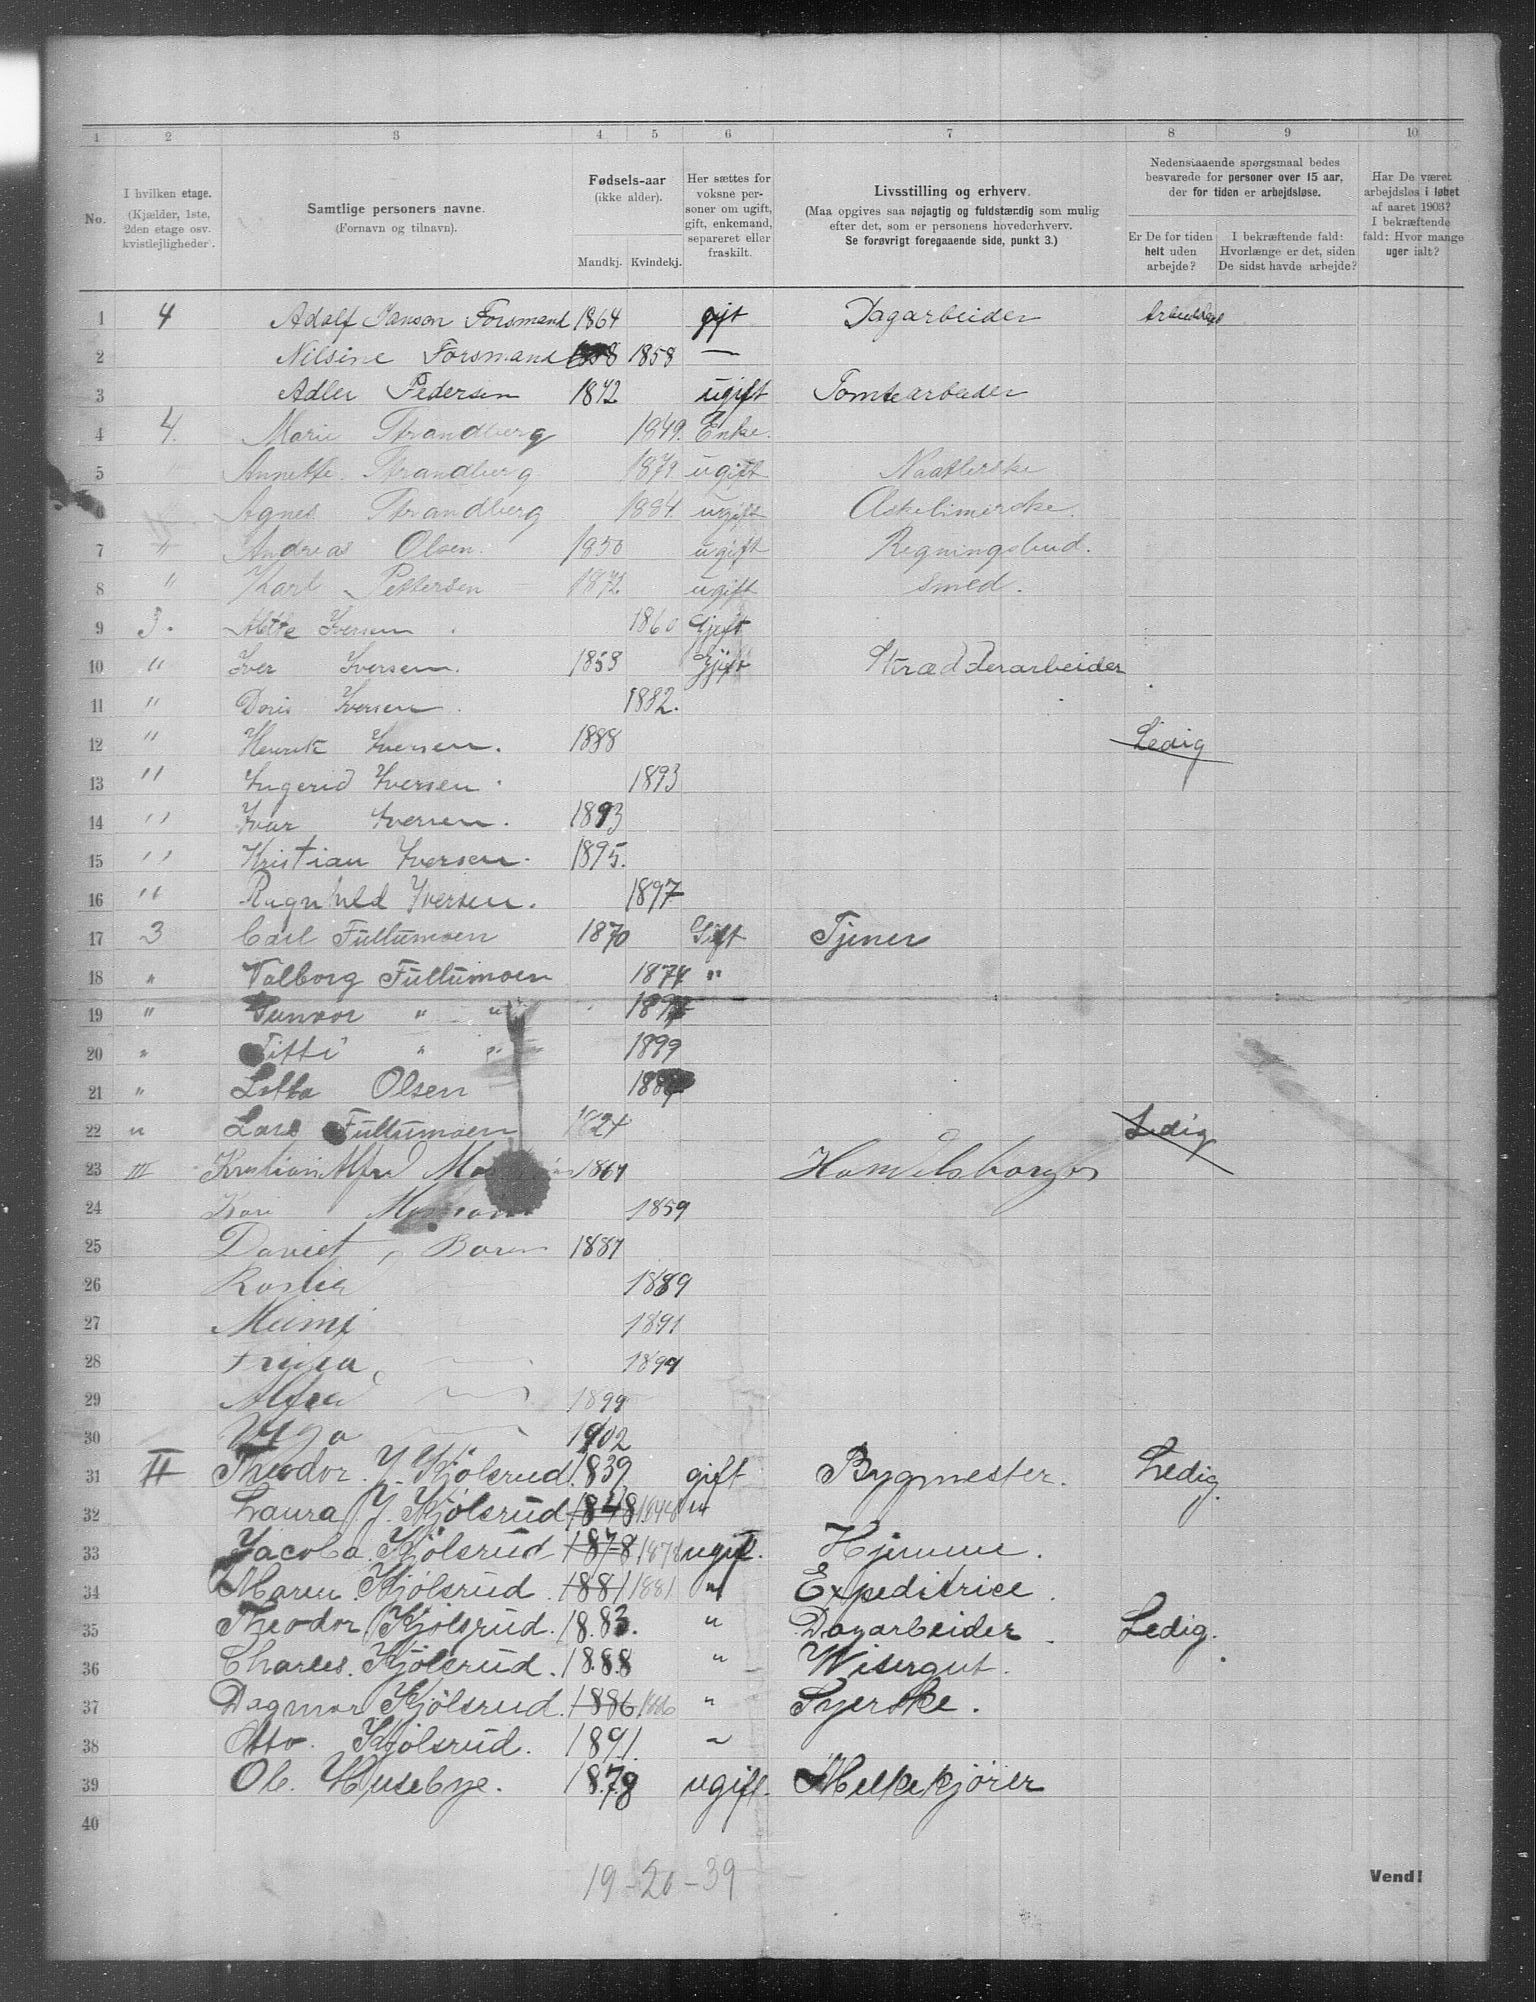 1 2 3 4 5 6 7 8 9 10
No. I hvilken etage. (Kjælder, 1ste, 2den etage osv. kvistleiligheder). Samtlige personers navne. (Fornavn og tilnavn). Fødsels-aar (ikke alder). Mandkj. Kvindekj. Her sættes for voksne personer om ugift, gift, enkemand, separeret eller fraskilt. Livsstilling og erhverv. (Maa opgives saa nøjagtig og fuldstændig som mulig efter det, som er personens hovederhverv. Se forøvrigt foregaaende side, punkt 3.) Nedenstaaende spørgsmaal bedes besvarede for personer over 15 aar, der for tiden er arbejdsløse. Er De for tiden helt uden arbejde? I bekræftende fald: Hvorlænge er det, siden De sidst havde arbejde? Har De været arbejdsløs i løbet af aaret 1903? I bekræftende fald: Hvor mange uger ialt?
1 4 Adolf Janson Forsmand 1864 gift Dagarbeider
2 Nilsine Forsmand 1858 1858 —
3 Adler Pedersen 1872 ugift Tomtearbeder
4 4. Marie Strandberg 1849. Enke.
5 Annette Strandberg 1879 ugift Naatlerske
6 Agnes Strandberg 1884 ugift
7 " Andreas Olsen. 1850 ugift Regningsbud.
8 " Karl Pettersen 1872 ugift smed.
9 3. Mette Iversen 1860 Gjift
10 " Iver Iversen. 1858 Gjift Skrædderarbeider
11 " Doris Iversen. 1882.
12 " Henrik Iversen. 1888 Ledig
13 " Ingerid Iversen. 1893
14 " Ivar Iversen. 1893
15 " Kristian Iversen. 1895.
16 " Ragnhild Iversen. 1897
17 3 Carl Fullumoen 1870 Gift Tjener
18 " Valborg Fullumoen 1874 "
19 " Gunvor " "
20 " Titti " " 1899
21 " Lotta Olsen
22 " Lars Fullumoen 1824 Ledig
23 III Kristian Alfred 1867 Handelsborger
24 1859
25 Daniel, Barn 1887
26 1889
27 Meimi 1891
28 1894
29 Alfred 1899
30 1902
31 II Theodor. J. Kjölsrud. 1839 gift Bygmester. Ledig.
32 Laura J. Kjölsrud 1848 1848 "
33 Jacoba. Kjölsrud 1878 1878 ugift. Hjemme.
34 Maren Kjölsrud. 1881 1881 " Expeditrice.
35 Theodor Kjölsrud. 1883. " Dagarbeider Ledig.
36 Charles. Kjölsrud. 1888 " Visergut.
37 Dagmar Kjölsrud. 1886 1886 " Syerske.
38 Otto. Kjölsrud. 1891. "
39 Ole. Husebye. 1878 ugift. Melkekjörer
40
19-20-39
Vend!